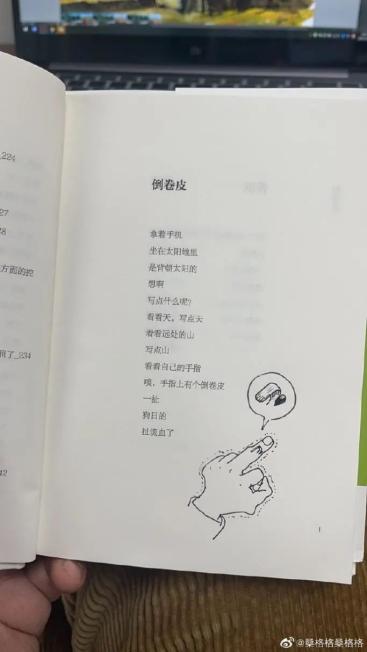 _224
27
28
方面的控
辑了_234
42
倒卷皮
拿着手机
坐在太阳地里
是背朝太阳的
想啊
写点什么呢?
看看天，写点天
看看远处的山
写点山
看看自己的手指
咦，手指上有个倒卷皮
一扯
狗日的
扯流血了
1
@桑格格桑格格